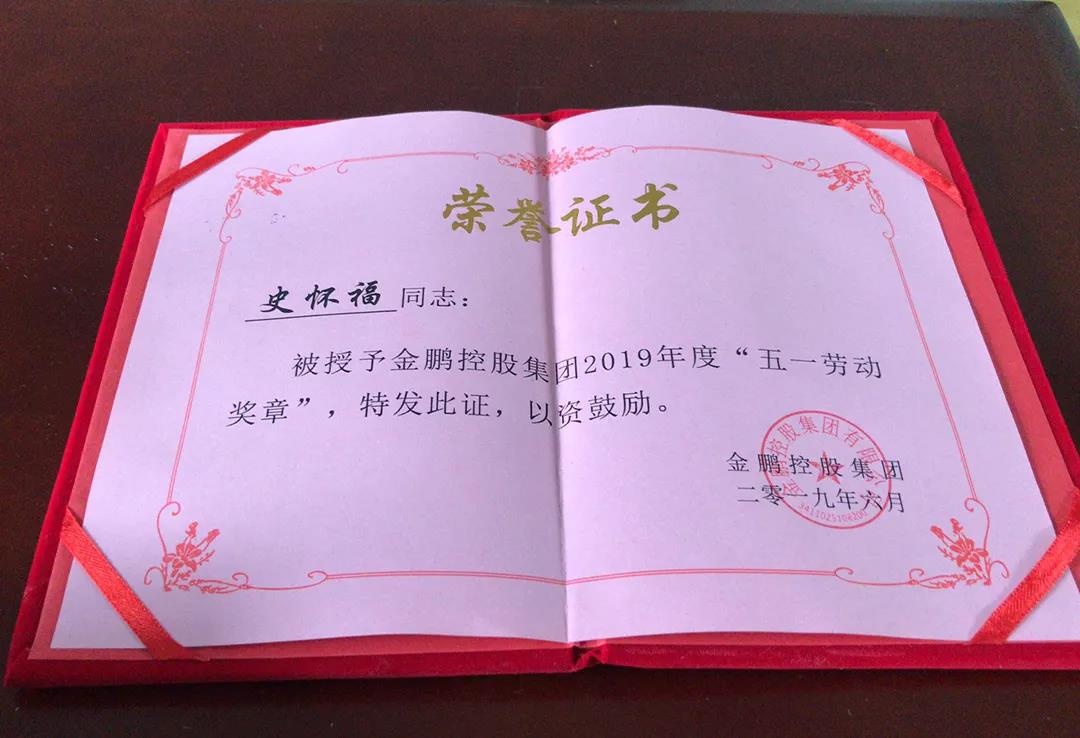 荣誉证书
史怀福 同志：
被授予金鹏控股集团2019年度“五一劳动
奖章”，特发此证，以资鼓励。
金鹏控股集团
二零一九年六月